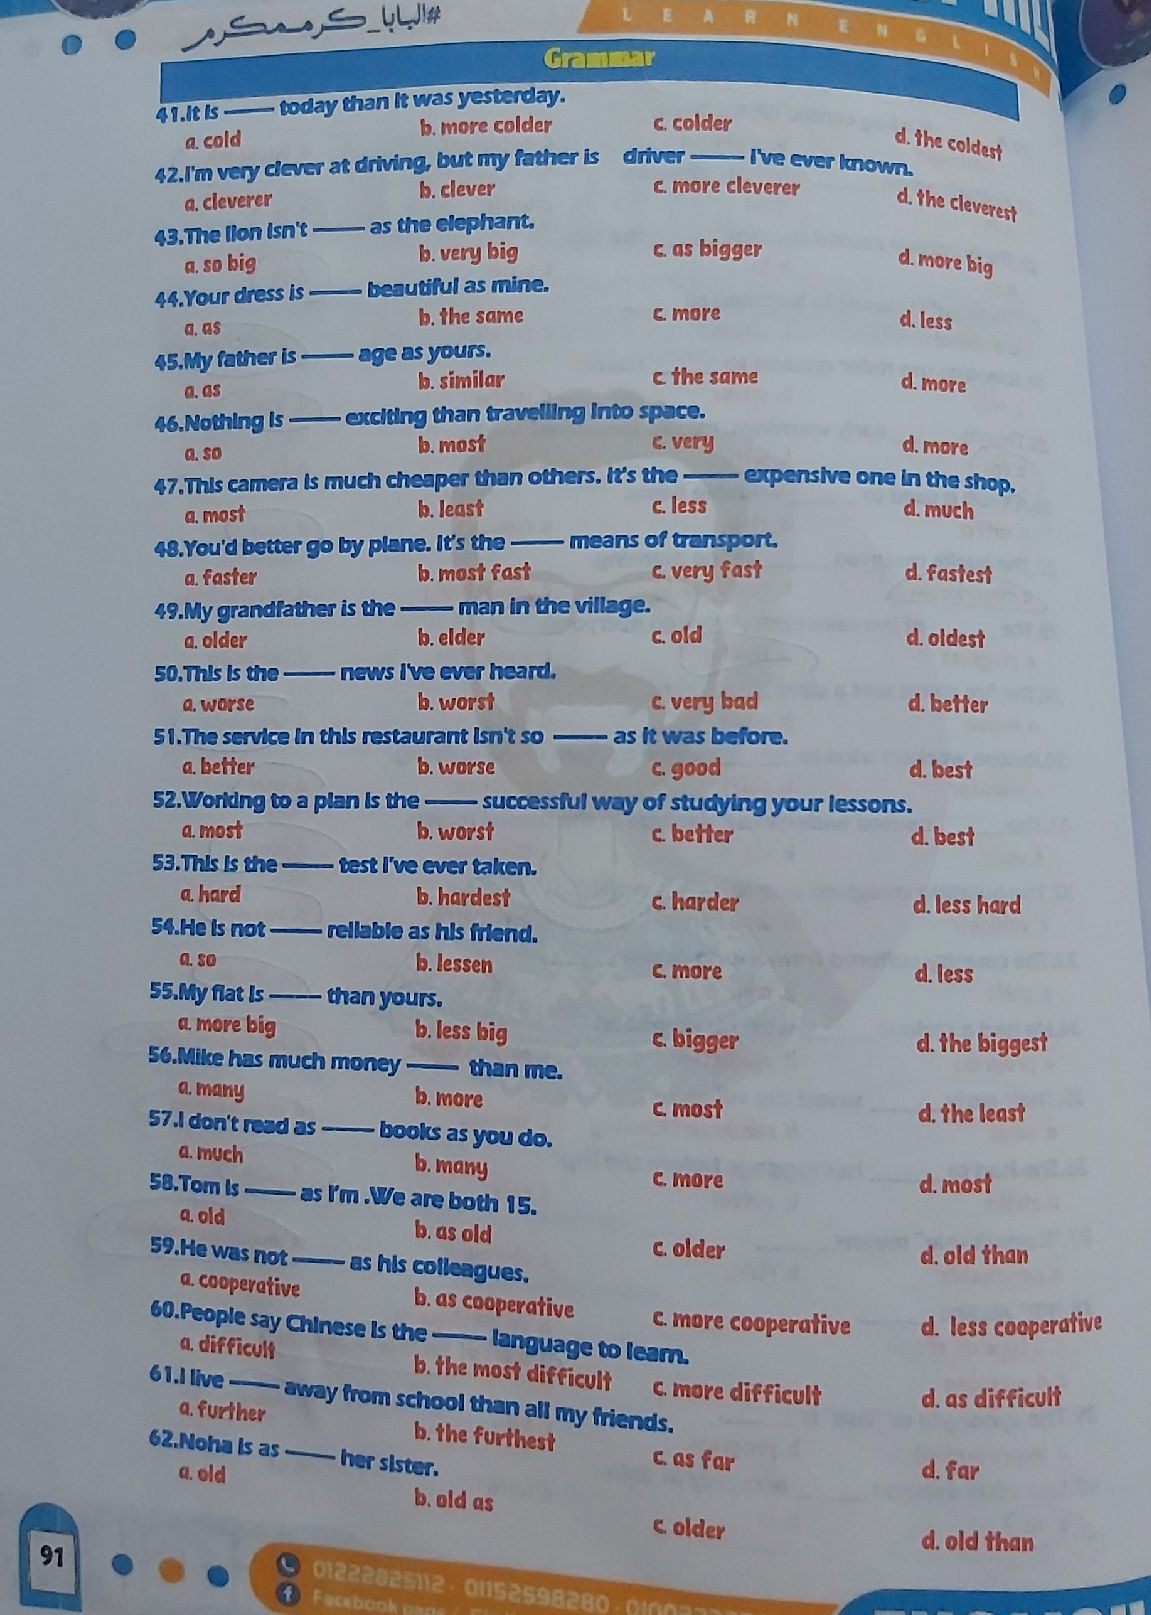 #البابا_كرم_مكرم
LEARN ENGLISH
Grammar
41.It is ——— today than it was yesterday.
a. cold b. more colder c. colder d. the coldest
42.I'm very clever at driving, but my father is driver ——— I've ever known.
a. cleverer b. clever c. more cleverer d. the cleverest
43.The lion isn't ——— as the elephant.
a. so big b. very big c. as bigger d. more big
44.Your dress is ——— beautiful as mine.
a. as b. the same c. more d. less
45.My father is ——— age as yours.
a. as b. similar c. the same d. more
46.Nothing is ——— exciting than travelling into space.
a. so b. most c. very d. more
47.This camera is much cheaper than others. It's the ——— expensive one in the shop.
a. most b. least c. less d. much
48.You'd better go by plane. It's the ——— means of transport.
a. faster b. most fast c. very fast d. fastest
49.My grandfather is the ——— man in the village.
a. older b. elder c. old d. oldest
50.This is the ——— news I've ever heard.
a. worse b. worst c. very bad d. better
51.The service in this restaurant isn't so ——— as it was before.
a. better b. worse c. good d. best
52.Working to a plan is the ——— successful way of studying your lessons.
a. most b. worst c. better d. best
53.This is the ——— test I've ever taken.
a. hard b. hardest c. harder d. less hard
54.He is not ——— reliable as his friend.
a. so b. lessen c. more d. less
55.My flat is ——— than yours.
a. more big b. less big c. bigger d. the biggest
56.Mike has much money ——— than me.
a. many b. more c. most d. the least
57.I don't read as ——— books as you do.
a. much b. many c. more d. most
58.Tom is ——— as I'm .We are both 15.
a. old b. as old c. older d. old than
59.He was not ——— as his colleagues.
a. cooperative b. as cooperative c. more cooperative d. less cooperative
60.People say Chinese is the ——— language to learn.
a. difficult b. the most difficult c. more difficult d. as difficult
61.I live ——— away from school than all my friends.
a. further b. the furthest c. as far d. far
62.Noha is as ——— her sister.
a. old b. old as c. older d. old than
91
01222825112 - 01152598280
Facebook